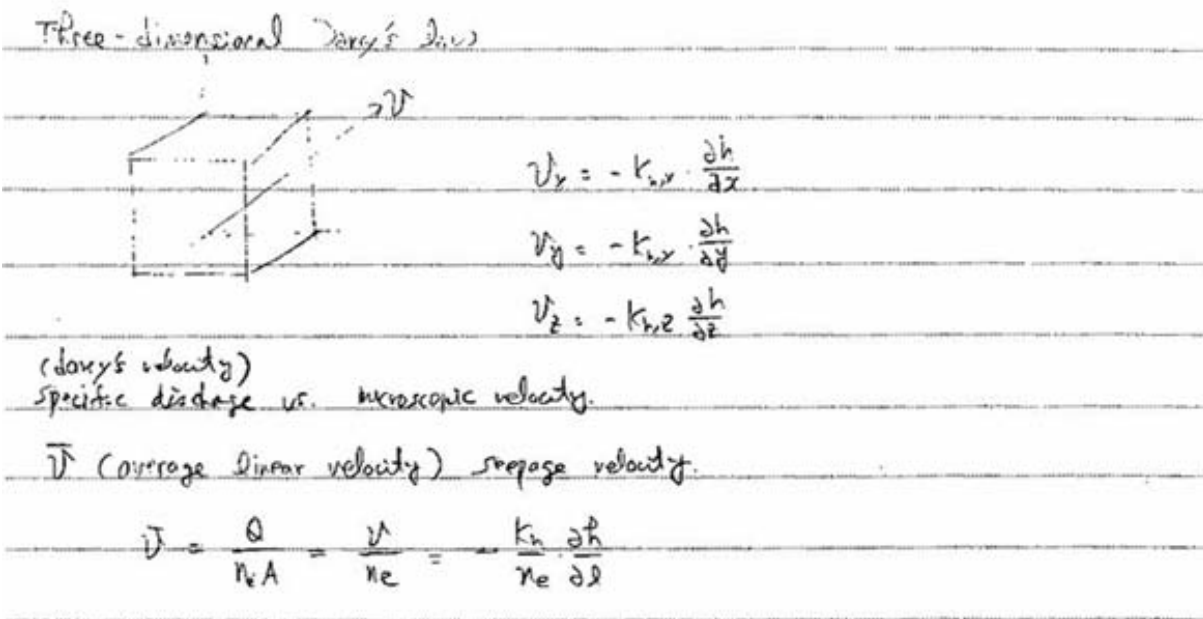 Three-dimensional Darcy's Law
v
v_x = - K_{h,x} · ∂h/∂x
v_y = - K_{h,y} · ∂h/∂y
v_z = - K_{h,z} ∂h/∂z
(darcy's velocity)
specific discharge vs. microscopic velocity.
v̄ (average linear velocity) seepage velocity.
v̄ = Q/(n_e A) = v/n_e = - K_h/n_e · ∂h/∂l